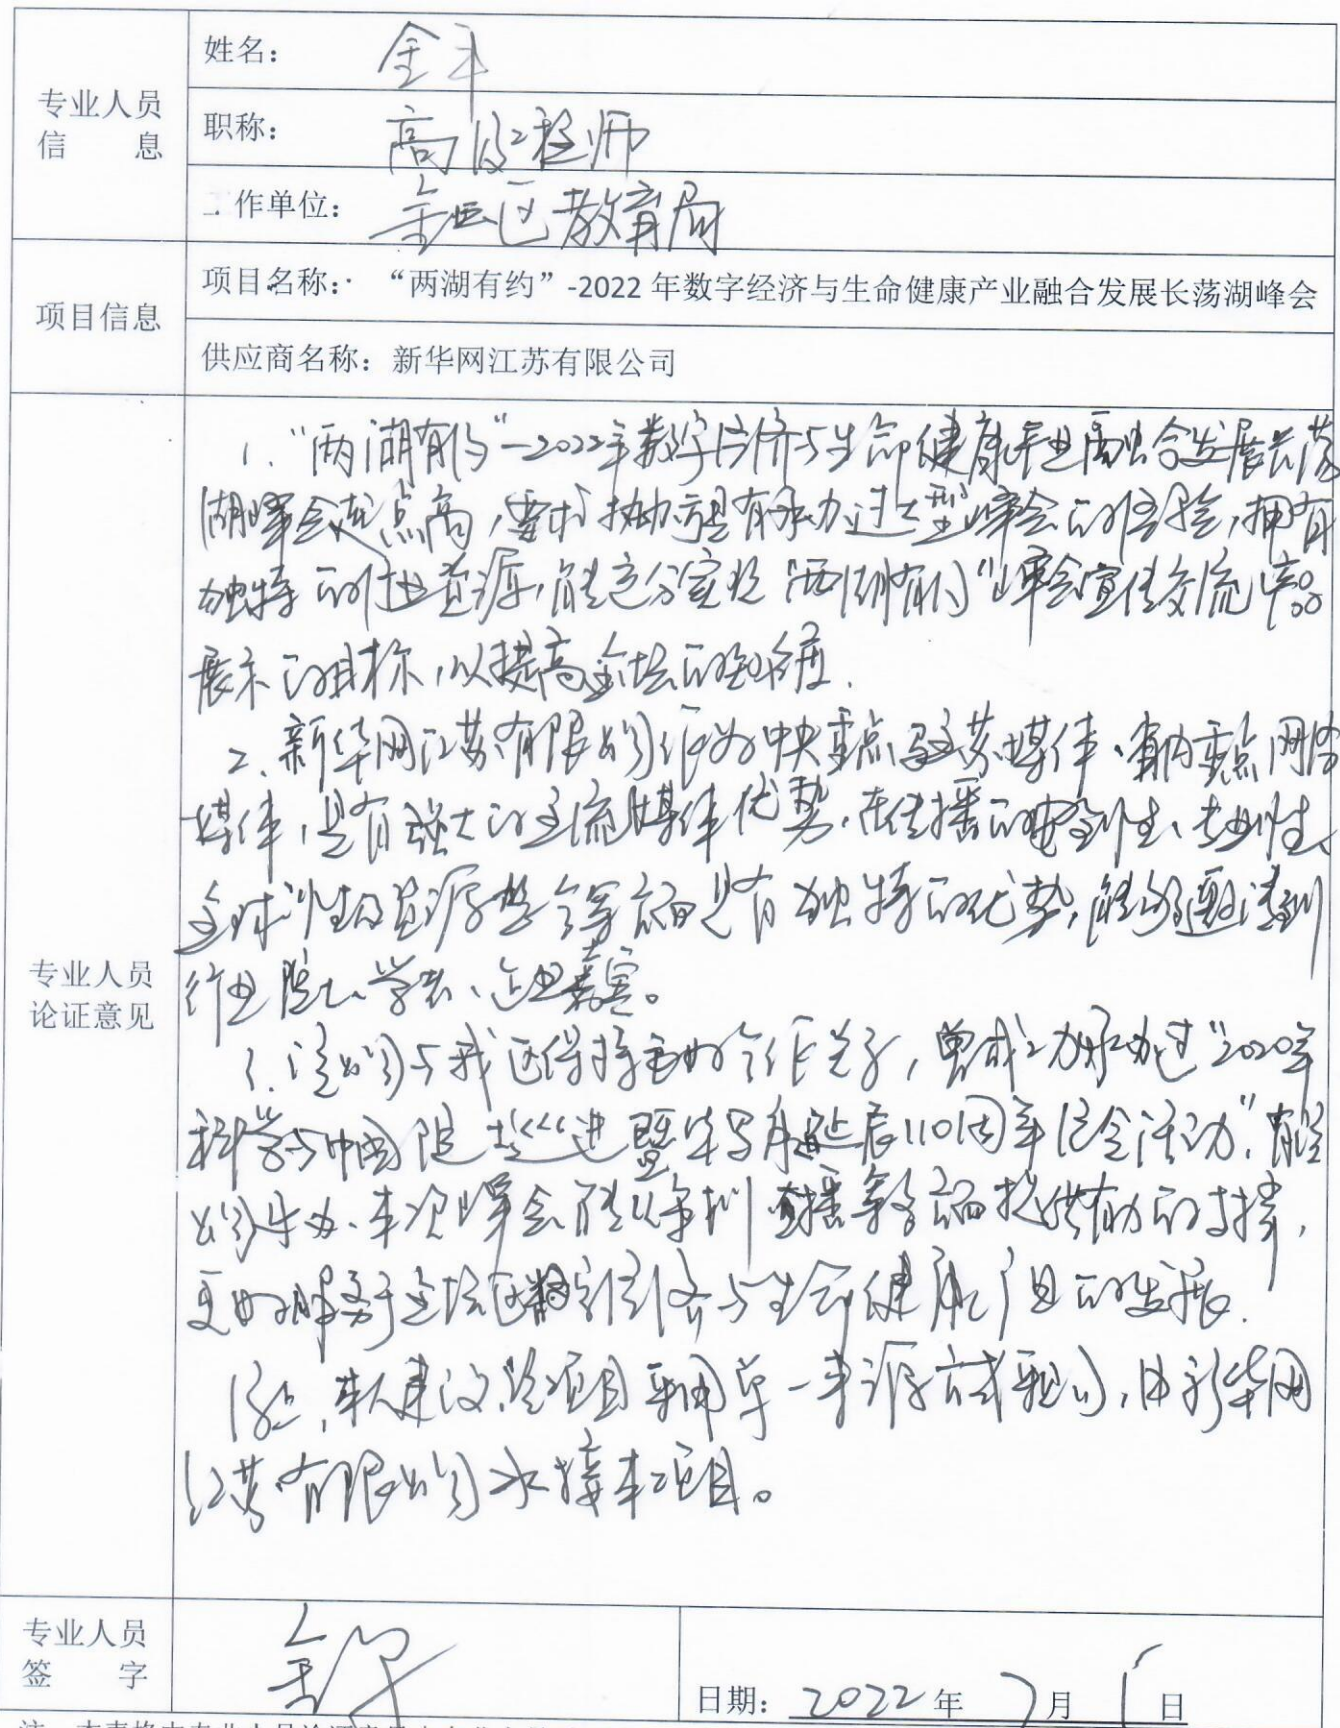 专业人员
信 息
姓名： 金平
职称： 高级工程师
工作单位： 金坛区教育局
项目信息
项目名称： “两湖有约”-2022 年数字经济与生命健康产业融合发展长荡湖峰会
供应商名称：新华网江苏有限公司
专业人员
论证意见
1、“两湖有约”-2022年数字经济与生命健康产业融合发展长荡
湖峰会起点高，要求执办方具有承办过大型峰会的经验，拥有
独特的行业资源，能充分实现“两湖有约”峰会宣传交流
展示的目标，以提高金坛的知名度.
2、新华网江苏有限公司作为中央重点驻苏媒体、省内重点网络
媒体，具有强大的主流媒体优势，在传播的专业性、
资源整合等方面具有独特的优势，能够邀请到
行业院士、学者、企业嘉宾。
3、该公司与我区保持良好合作关系，曾成功承办过“2020年
科学与中国院士巡讲暨华罗庚诞辰110周年纪念活动”，
公司牛办、本次峰会能从策划、直播等各方面提供有力的支撑，
更好服务于金坛区数字经济与生命健康产业的发展.
综上，本人建议该项目采用单一来源方式采购，由新华网
江苏有限公司承接本项目。
专业人员
签 字
金平
日期：2022 年 7 月 1 日